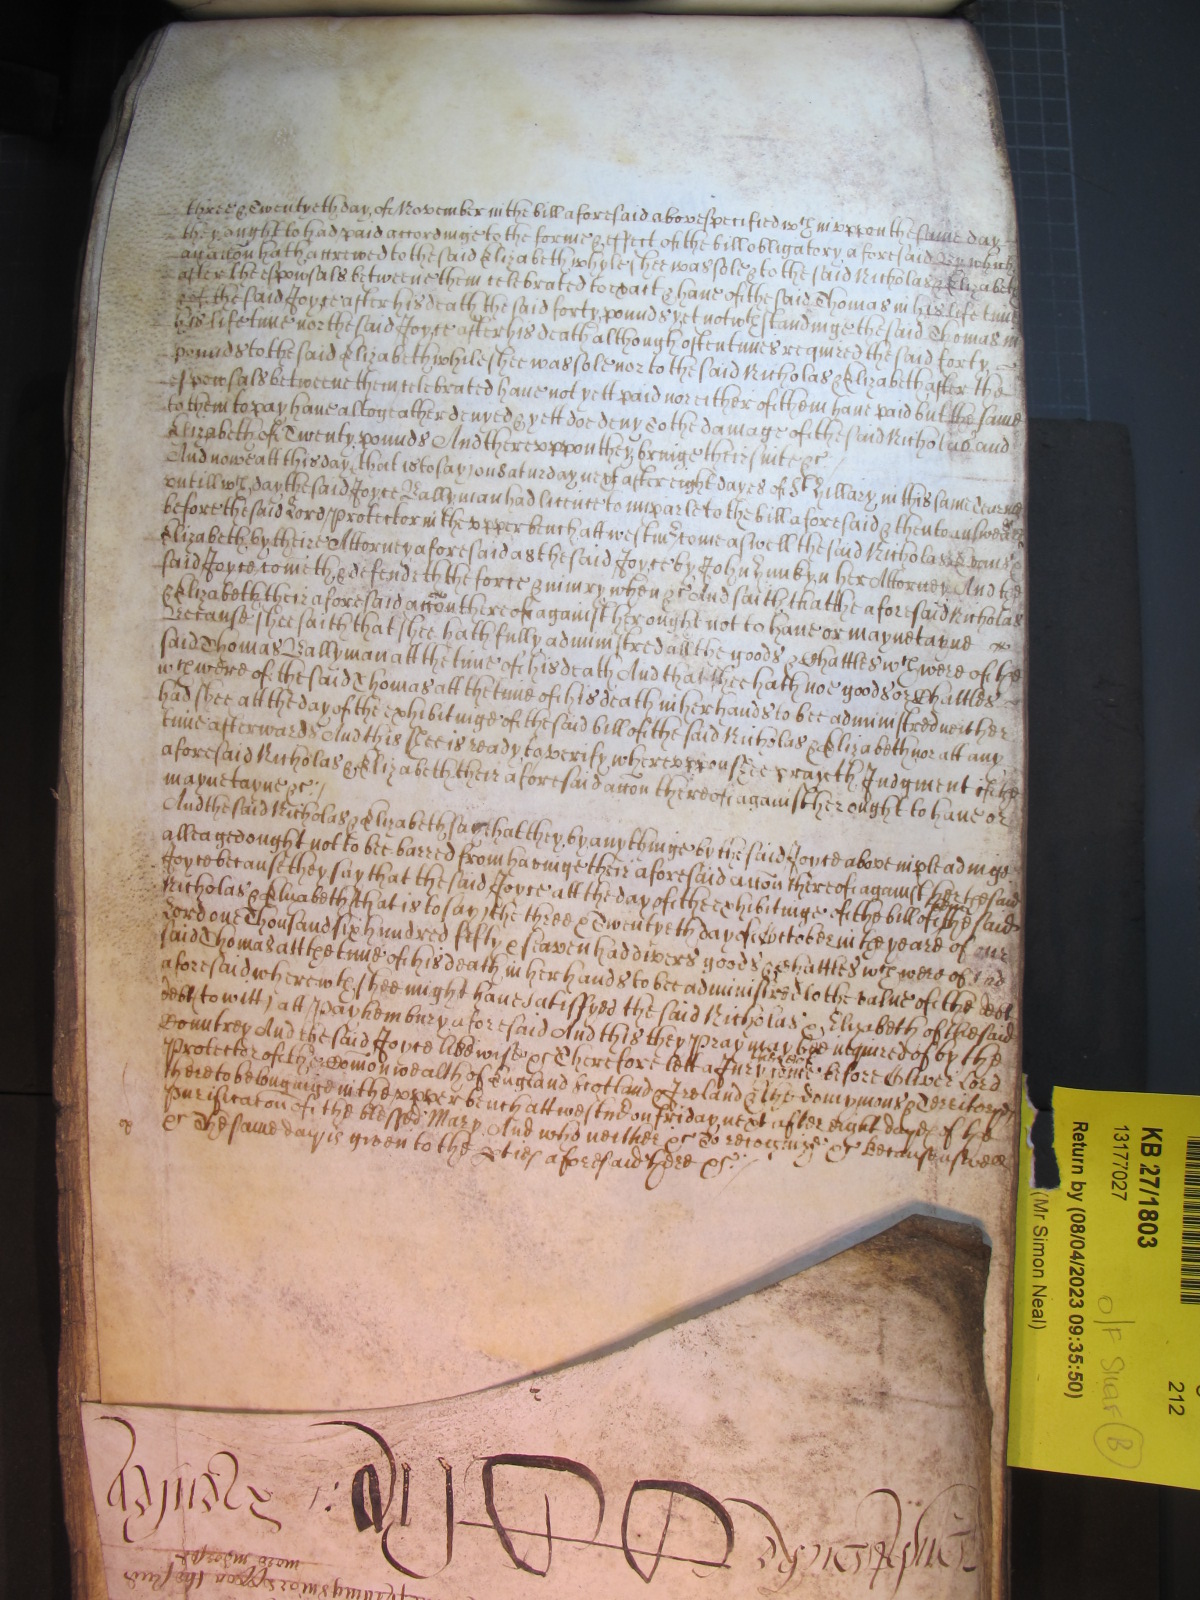 three & Twentyeth day of November in the bill aforesaid above specified wch in uppon the same day
they ought to had paid accordinge to the forme & effect of the bill obligatory aforesaid By which
an accon hath accrewed to the said Elizabeth whyle shee was sole & to the said Nicholas & Elizabeth
after the espousals betweene them celebrated to exait & have of the said Thomas in his life time
& of the said Joyce after his death the said forty pounds yet notwthstandinge the said Thomas in
his life time nor the said Joyce after his death although oftentimes required the said forty
pounds to the said Elizabeth while shee was sole nor to the said Nicholas & Elizabeth after the
espousals betweene them celebrated have not yett paid nor either of them have paid but the same
to them to pay have altogeather denyed & yett doe deny To the damage of the said Nicholas and
Elizabeth of Twenty pounds And thereuppon they bringe their suite &c
And nowe att this day that is to say on Saturday next after eight dayes of St Hillary in this same Tearme
untill wch day the said Joyce Ballyman had licence to imparle to the bill aforesaid & then to answeare
before the said Lord Protector in the upper bench att Westmr come aswell the said Nicholas Evans &
Elizabeth by theire Attorney aforesaid as the said Joyce by John Hunkyn her Attorney And the
said Joyce cometh & defendeth the force & iniury when &c And saith that the aforesaid Nicholas
& Elizabeth their aforesaid accon thereof against her ought not to have or maynetayne
Because shee saith that shee hath fully administred all the goods & Chattles wch were of the
said Thomas Ballyman att the time of his death And that shee hath noe goods or Chattles
wch were of the said Thomas att the time of his death in her hands to bee administred neither
had shee att the day of the exhibitinge of the said bill of the said Nicholas & Elizabeth nor att any
time afterwards And this shee is ready to verify whereuppon shee prayeth Judgment if the
aforesaid Nicholas & Elizabeth their aforesaid accon thereof against her ought to have or
maynetayne &c
And the said Nicholas & Elizabeth say that they by any thinge by the said Joyce above in pleadinge
alleaged ought not to bee barred from havinge their aforesaid accon thereof against her the said
Joyce because they say that the said Joyce att the day of the exhibitinge of the bill of the said
Nicholas & Elizabeth that is to say the three & Twentyeth day of October in the yeare of our
Lord one Thousand six hundred fifty & seaven had divers goods & Chattles wch were of the
said Thomas att the time of his death in her hands to bee administred to the value of the debt
aforesaid wherewth shee might have satisfyed the said Nicholas & Elizabeth of the said
debt to witt att Payhembury aforesaid And this they pray may bee inquired of by the
Countrey And the said Joyce likewise &c Therefore lett a Jury come before Oliver Lord
Protector of the Comonwealth of England Scotland & Ireland & the Dominions & Territoryes
thereto belonginge in the upper bench att Westmr on Friday next after eight dayes of the
Purificacon of the blessed Mary And who neither &c To recognize &c because aswell
&c The same day is given to the pties aforesaid there &c
KB 27/1803
13177027
Return by (08/04/2023 09:35:50)
(Mr Simon Neal)
212
O/F Shaf B